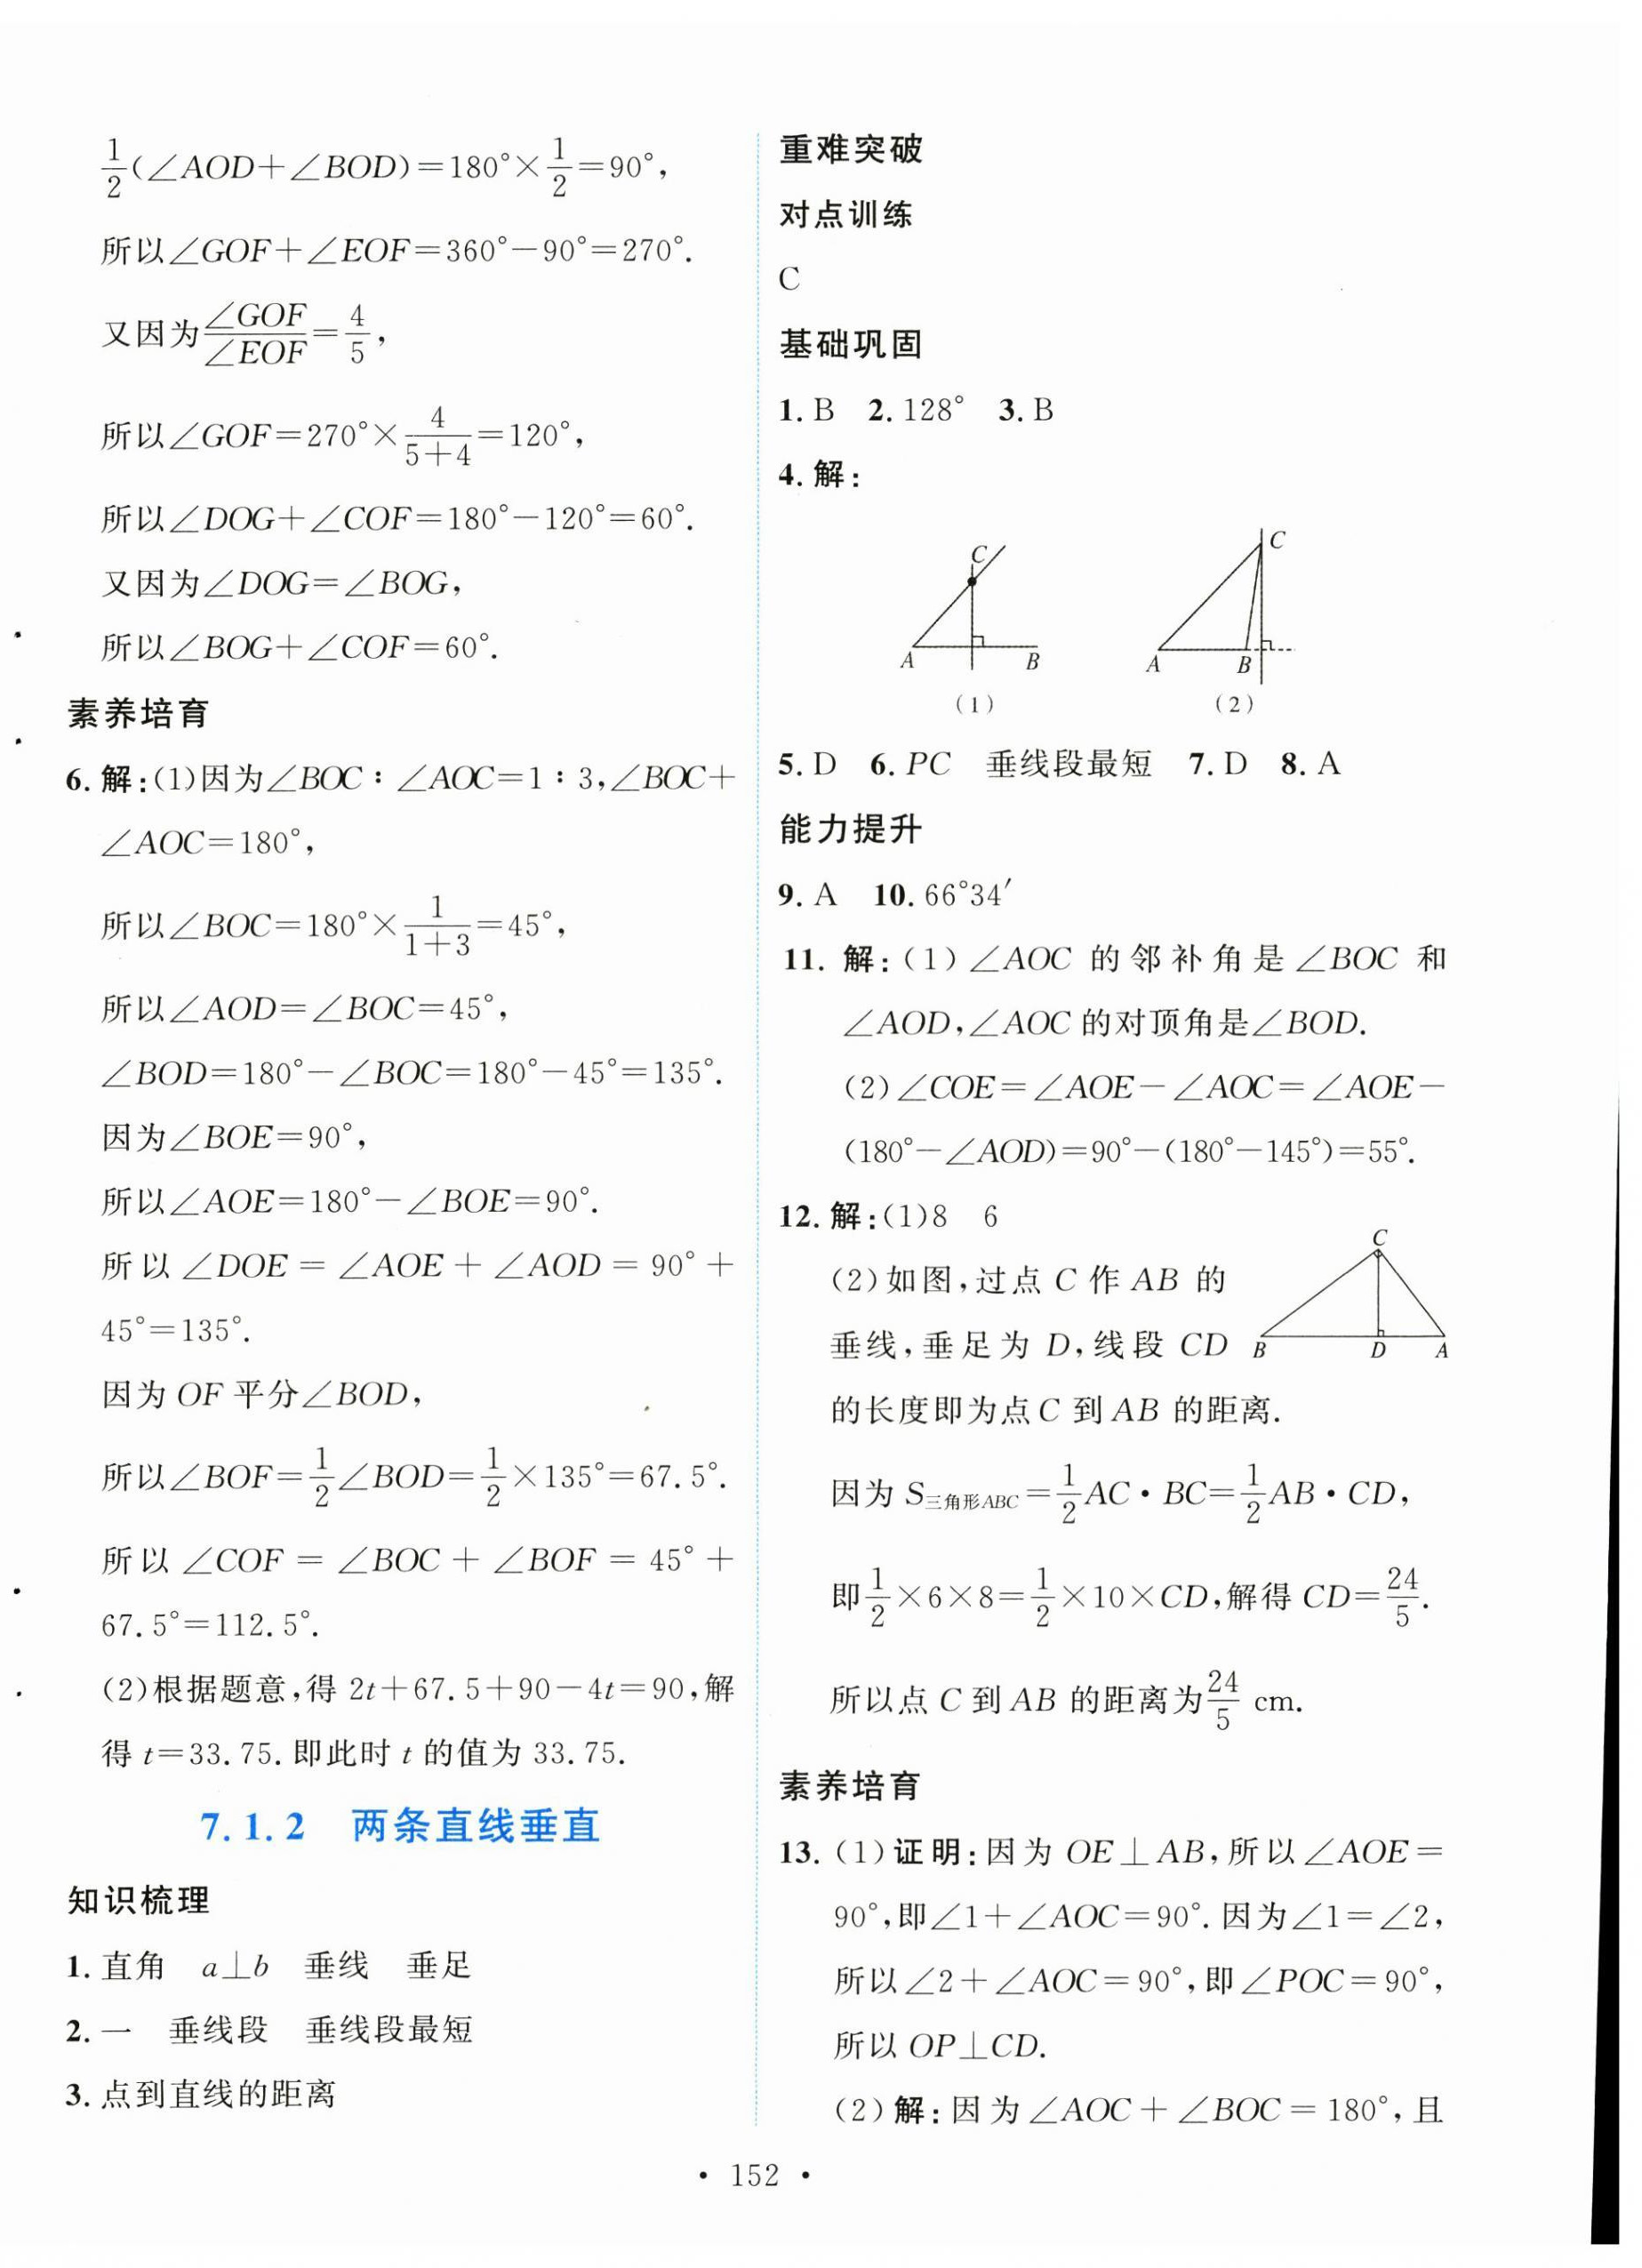 $\frac{1}{2}$(∠AOD+∠BOD)=180°×$\frac{1}{2}$=90°,
所以∠GOF+∠EOF=360°-90°=270°.
又因为$\frac{∠GOF}{∠EOF}$=$\frac{4}{5}$,
所以∠GOF=270°×$\frac{4}{5+4}$=120°,
所以∠DOG+∠COF=180°-120°=60°.
又因为∠DOG=∠BOG,
所以∠BOG+∠COF=60°.
素养培育
6.解:(1)因为∠BOC∶∠AOC=1∶3,∠BOC+
∠AOC=180°,
所以∠BOC=180°×$\frac{1}{1+3}$=45°,
所以∠AOD=∠BOC=45°,
∠BOD=180°-∠BOC=180°-45°=135°.
因为∠BOE=90°,
所以∠AOE=180°-∠BOE=90°.
所以∠DOE=∠AOE+∠AOD=90°+
45°=135°.
因为OF平分∠BOD,
所以∠BOF=$\frac{1}{2}$∠BOD=$\frac{1}{2}$×135°=67.5°.
所以∠COF=∠BOC+∠BOF=45°+
67.5°=112.5°.
(2)根据题意,得2t+67.5+90-4t=90,解
得t=33.75.即此时t的值为33.75.
7.1.2 两条直线垂直
知识梳理
1.直角 a⊥b 垂线 垂足
2.一 垂线段 垂线段最短
3.点到直线的距离
重难突破
对点训练
C
基础巩固
1.B 2.128° 3.B
4.解:
C
A
B
(1)
C
A
B
(2)
5.D 6.PC 垂线段最短 7.D 8.A
能力提升
9.A 10.66°34′
11.解:(1)∠AOC的邻补角是∠BOC和
∠AOD,∠AOC的对顶角是∠BOD.
(2)∠COE=∠AOE-∠AOC=∠AOE-
(180°-∠AOD)=90°-(180°-145°)=55°.
12.解:(1)8 6
(2)如图,过点C作AB的
垂线,垂足为D,线段CD
的长度即为点C到AB的距离.
C
B
D
A
因为S三角形ABC=$\frac{1}{2}$AC·BC=$\frac{1}{2}$AB·CD,
即$\frac{1}{2}$×6×8=$\frac{1}{2}$×10×CD,解得CD=$\frac{24}{5}$.
所以点C到AB的距离为$\frac{24}{5}$ cm.
素养培育
13.(1)证明:因为OE⊥AB,所以∠AOE=
90°,即∠1+∠AOC=90°.因为∠1=∠2,
所以∠2+∠AOC=90°,即∠POC=90°,
所以OP⊥CD.
(2)解:因为∠AOC+∠BOC=180°,且
·152·